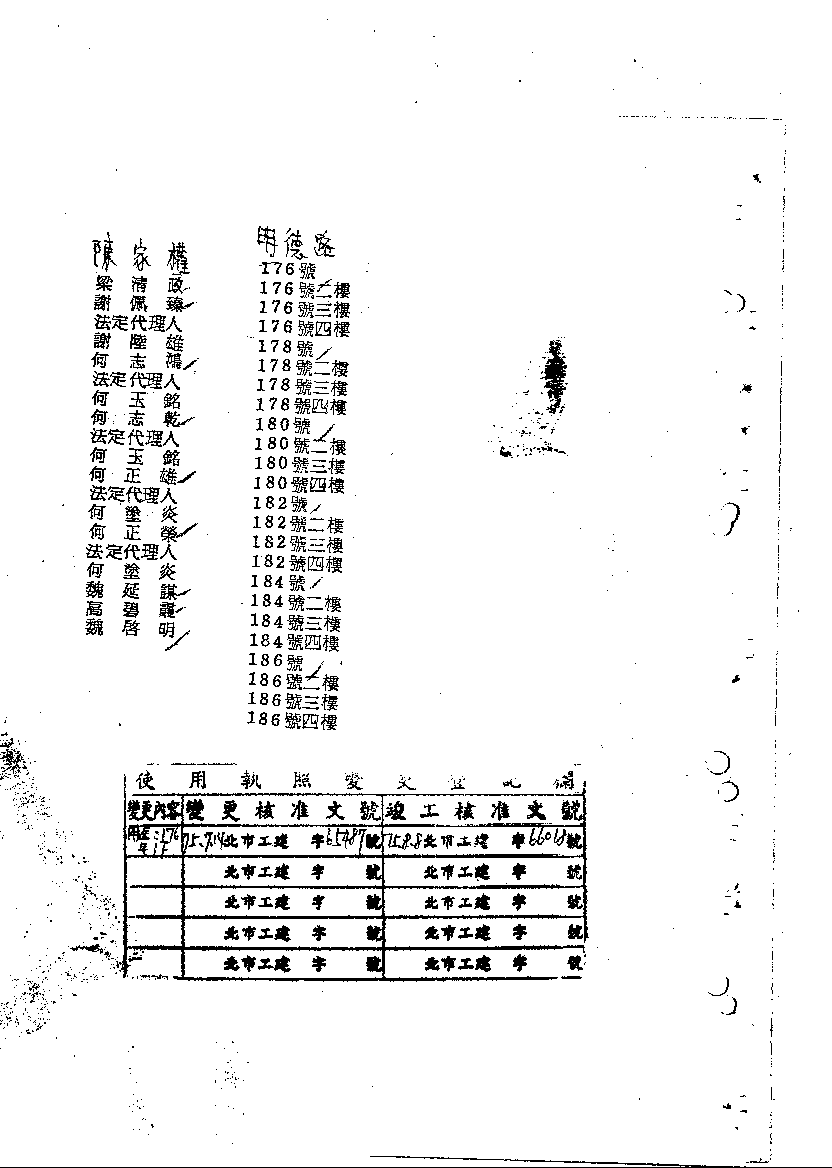 陳家權
梁清政
謝佩臻
法定代理人
謝陸雄
何志鴻
法定代理人
何玉銘
何志乾
法定代理人
何玉銘
何正雄
法定代理人
何塗炎
何正榮
法定代理人
何塗炎
魏延謀
高碧麗
魏啓明
明德路
176號
176號二樓
176號三樓
176號四樓
178號
178號二樓
178號三樓
178號四樓
180號
180號二樓
180號三樓
180號四樓
182號
182號二樓
182號三樓
182號四樓
184號
184號二樓
184號三樓
184號四樓
186號
186號二樓
186號三樓
186號四樓
使用執照變更登記欄
變更內容 變更核准文號 竣工核准文號
75.7.14北市工建 字65487號 75.8.8北市工建 字66018號
北市工建 字 號 北市工建 字 號
北市工建 字 號 北市工建 字 號
北市工建 字 號 北市工建 字 號
北市工建 字 號 北市工建 字 號